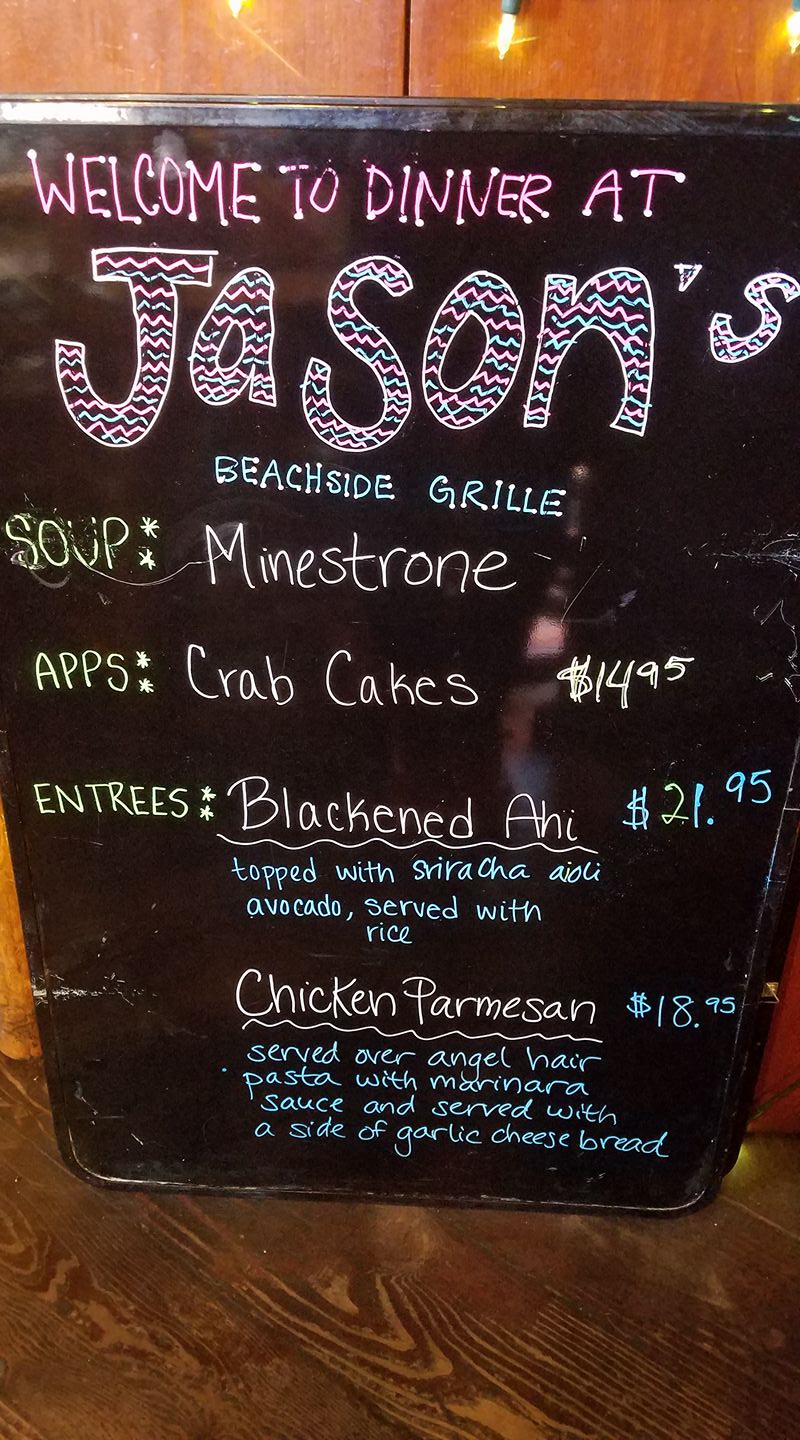 WELCOME TO DINNER AT
Jason's
BEACHSIDE GRILLE
SOUP: Minestrone
APPS: Crab Cakes $14 95
ENTREES: Blackened Ahi $21.95
topped with sriracha aioli
avocado, served with
rice
Chicken Parmesan $18.95
served over angel hair
pasta with marinara
sauce and served with
a side of garlic cheese bread